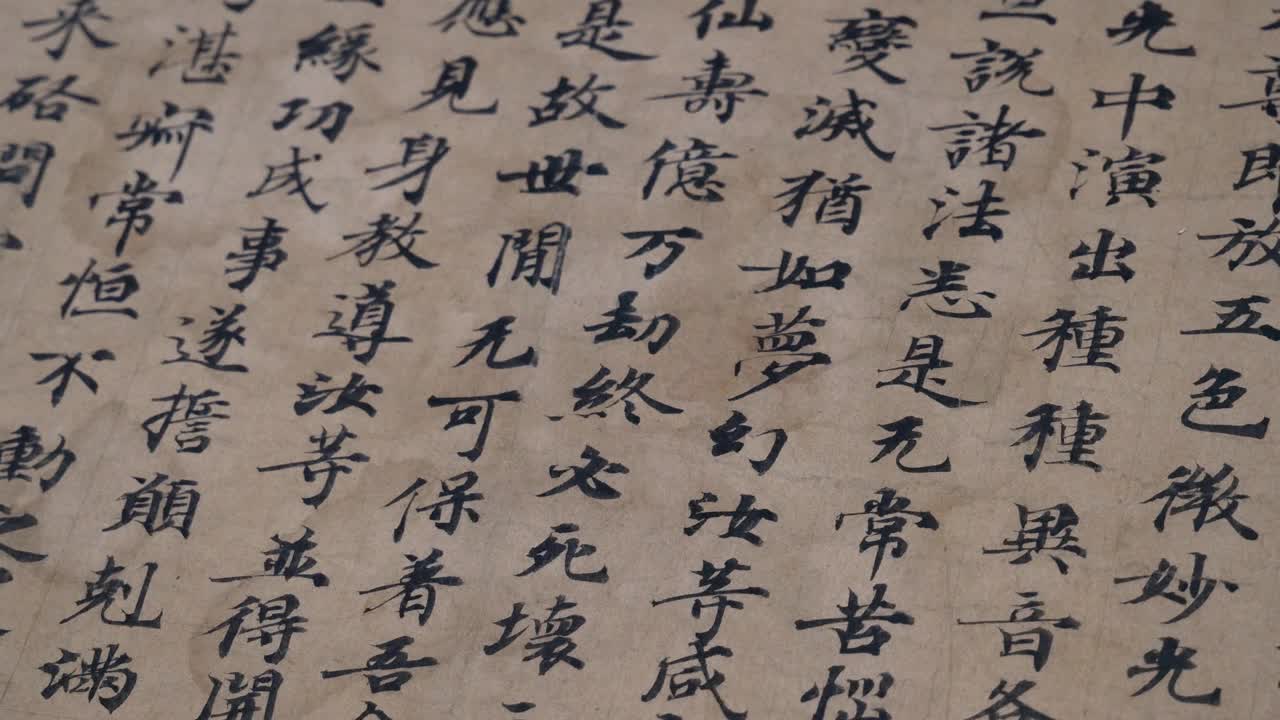 即放五色微妙光
光中演出種種異音各
說諸法悉是无常苦惱
變滅猶如夢幻汝等咸
仙壽億万劫終必死壞
是故世間无可保着吾
應見身教導汝等並得開
緣功成事遂誓願剋滿
湛常恒不動之
来問